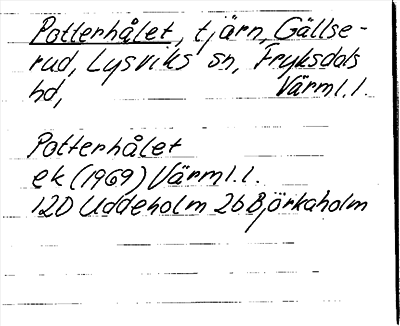 Potterhålet, tjärn, Gällse-
rud, Lysviks sn, Fryksdals
hd, Värml.l.
Potterhålet
ek (1969) Värml.l.
12D Uddeholm 2b Björkaholm